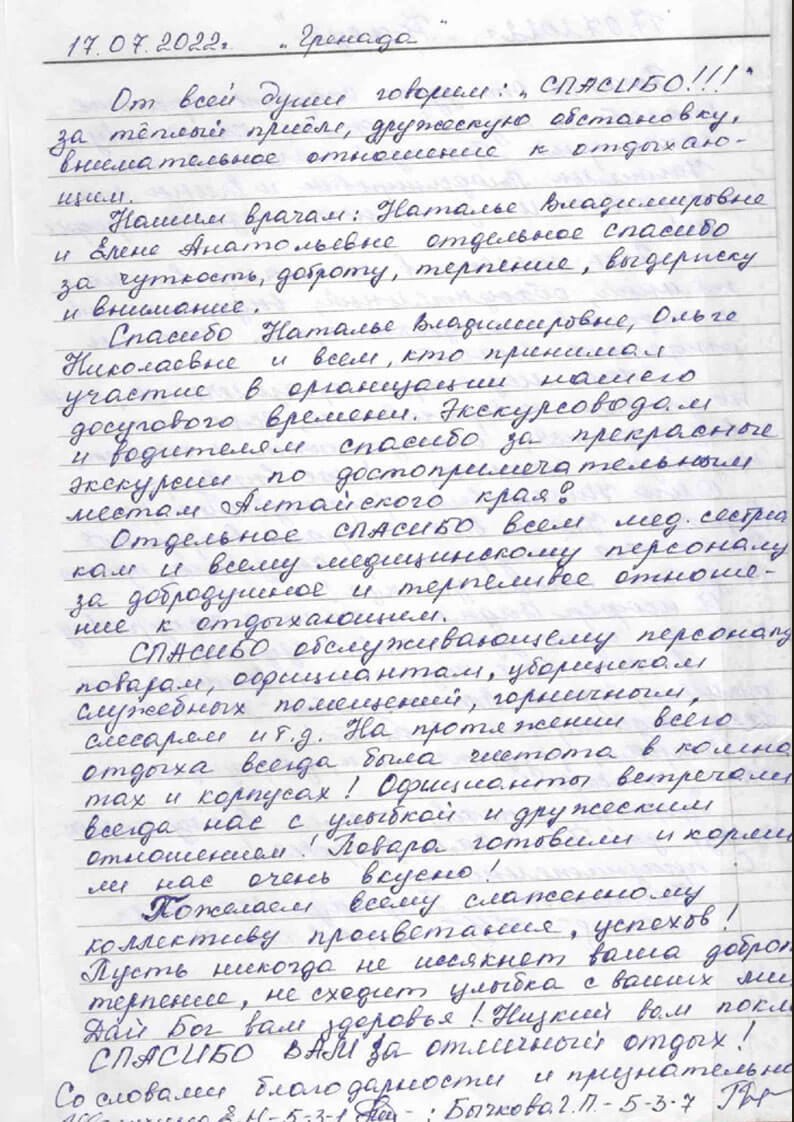 17.07.2022г. „Гренада"
От всей души говорим: „СПАСИБО!!!"
за тёплый приём, дружескую обстановку,
внимательное отношение к отдыхаю-
щим.
Нашим врачам: Наталье Владимировне
и Елене Анатольевне отдельное спасибо
за чуткость, доброту, терпение, выдержку
и внимание.
Спасибо Наталье Владимировне, Ольге
Николаевне и всем, кто принимал
участие в организации нашего
досугового времени. Экскурсоводам
и водителям спасибо за прекрасные
экскурсии по достопримечательным
местам Алтайского края!
Отдельное СПАСИБО всем мед. сестрич
кам и всему медицинскому персоналу
за добродушное и терпеливое отноше-
ние к отдыхающим.
СПАСИБО обслуживающему персоналу
поварам, официантам, уборщикам
служебных помещений, горничным,
слесарям и т.д. На протяжении всего
отдыха всегда была чистота в комна
тах и корпусах! Официанты встречали
всегда нас с улыбкой и дружеским
отношением! Повара готовили и корми
ли нас очень вкусно!
Пожелаем всему слаженному
коллективу процветания, успехов!
Пусть никогда не иссякнет ваша доброт
терпение, не сходит улыбка с ваших ли
Дай Бог вам здоровья! Низкий вам покл
СПАСИБО ВАМ за отличный отдых!
Со словами благодарности и признательно
Е.Н-5-3-1 : Бычкова Г.П.-5-3-7